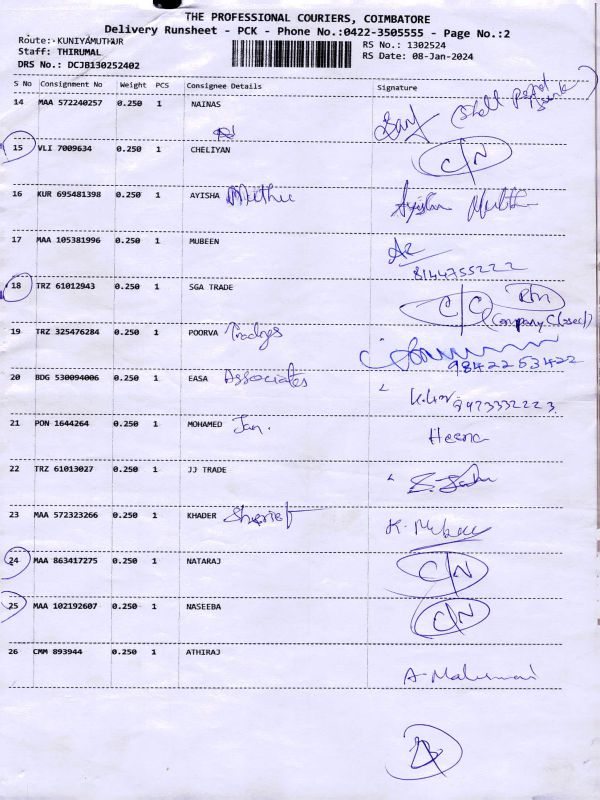 THE PROFESSIONAL COURIERS, COIMBATORE
Delivery Runsheet - PCK - Phone No.:0422-3505555 - Page No.:2
Route:- KUNIYAMUTHUR
RS No.: 1302524
Staff: THIRUMAL
RS Date: 08-Jan-2024
DRS No.: DCJB130252402
S No Consignment No Weight PCS Consignee Details Signature
14 MAA 572240257 0.250 1 NAINAS
15 VLI 7009634 0.250 1 CHELIYAN C/N
16 KUR 695481398 0.250 1 AYISHA Muthu
17 MAA 105381996 0.250 1 MUBEEN
8144755222
18 TRZ 61012943 0.250 1 SGA TRADE C/C
(Company Closed)
19 TRZ 325476284 0.250 1 POORVA Tradges
98422 53422
20 BDG 530094006 0.250 1 EASA Associates
9473332223
21 PON 1644264 0.250 1 MOHAMED Jan. Heena
22 TRZ 61013027 0.250 1 JJ TRADE
23 MAA 572323266 0.250 1 KHADER Sherief
24 MAA 863417275 0.250 1 NATARAJ C/N
25 MAA 102192607 0.250 1 NASEEBA C/N
26 CMM 893944 0.250 1 ATHIRAJ